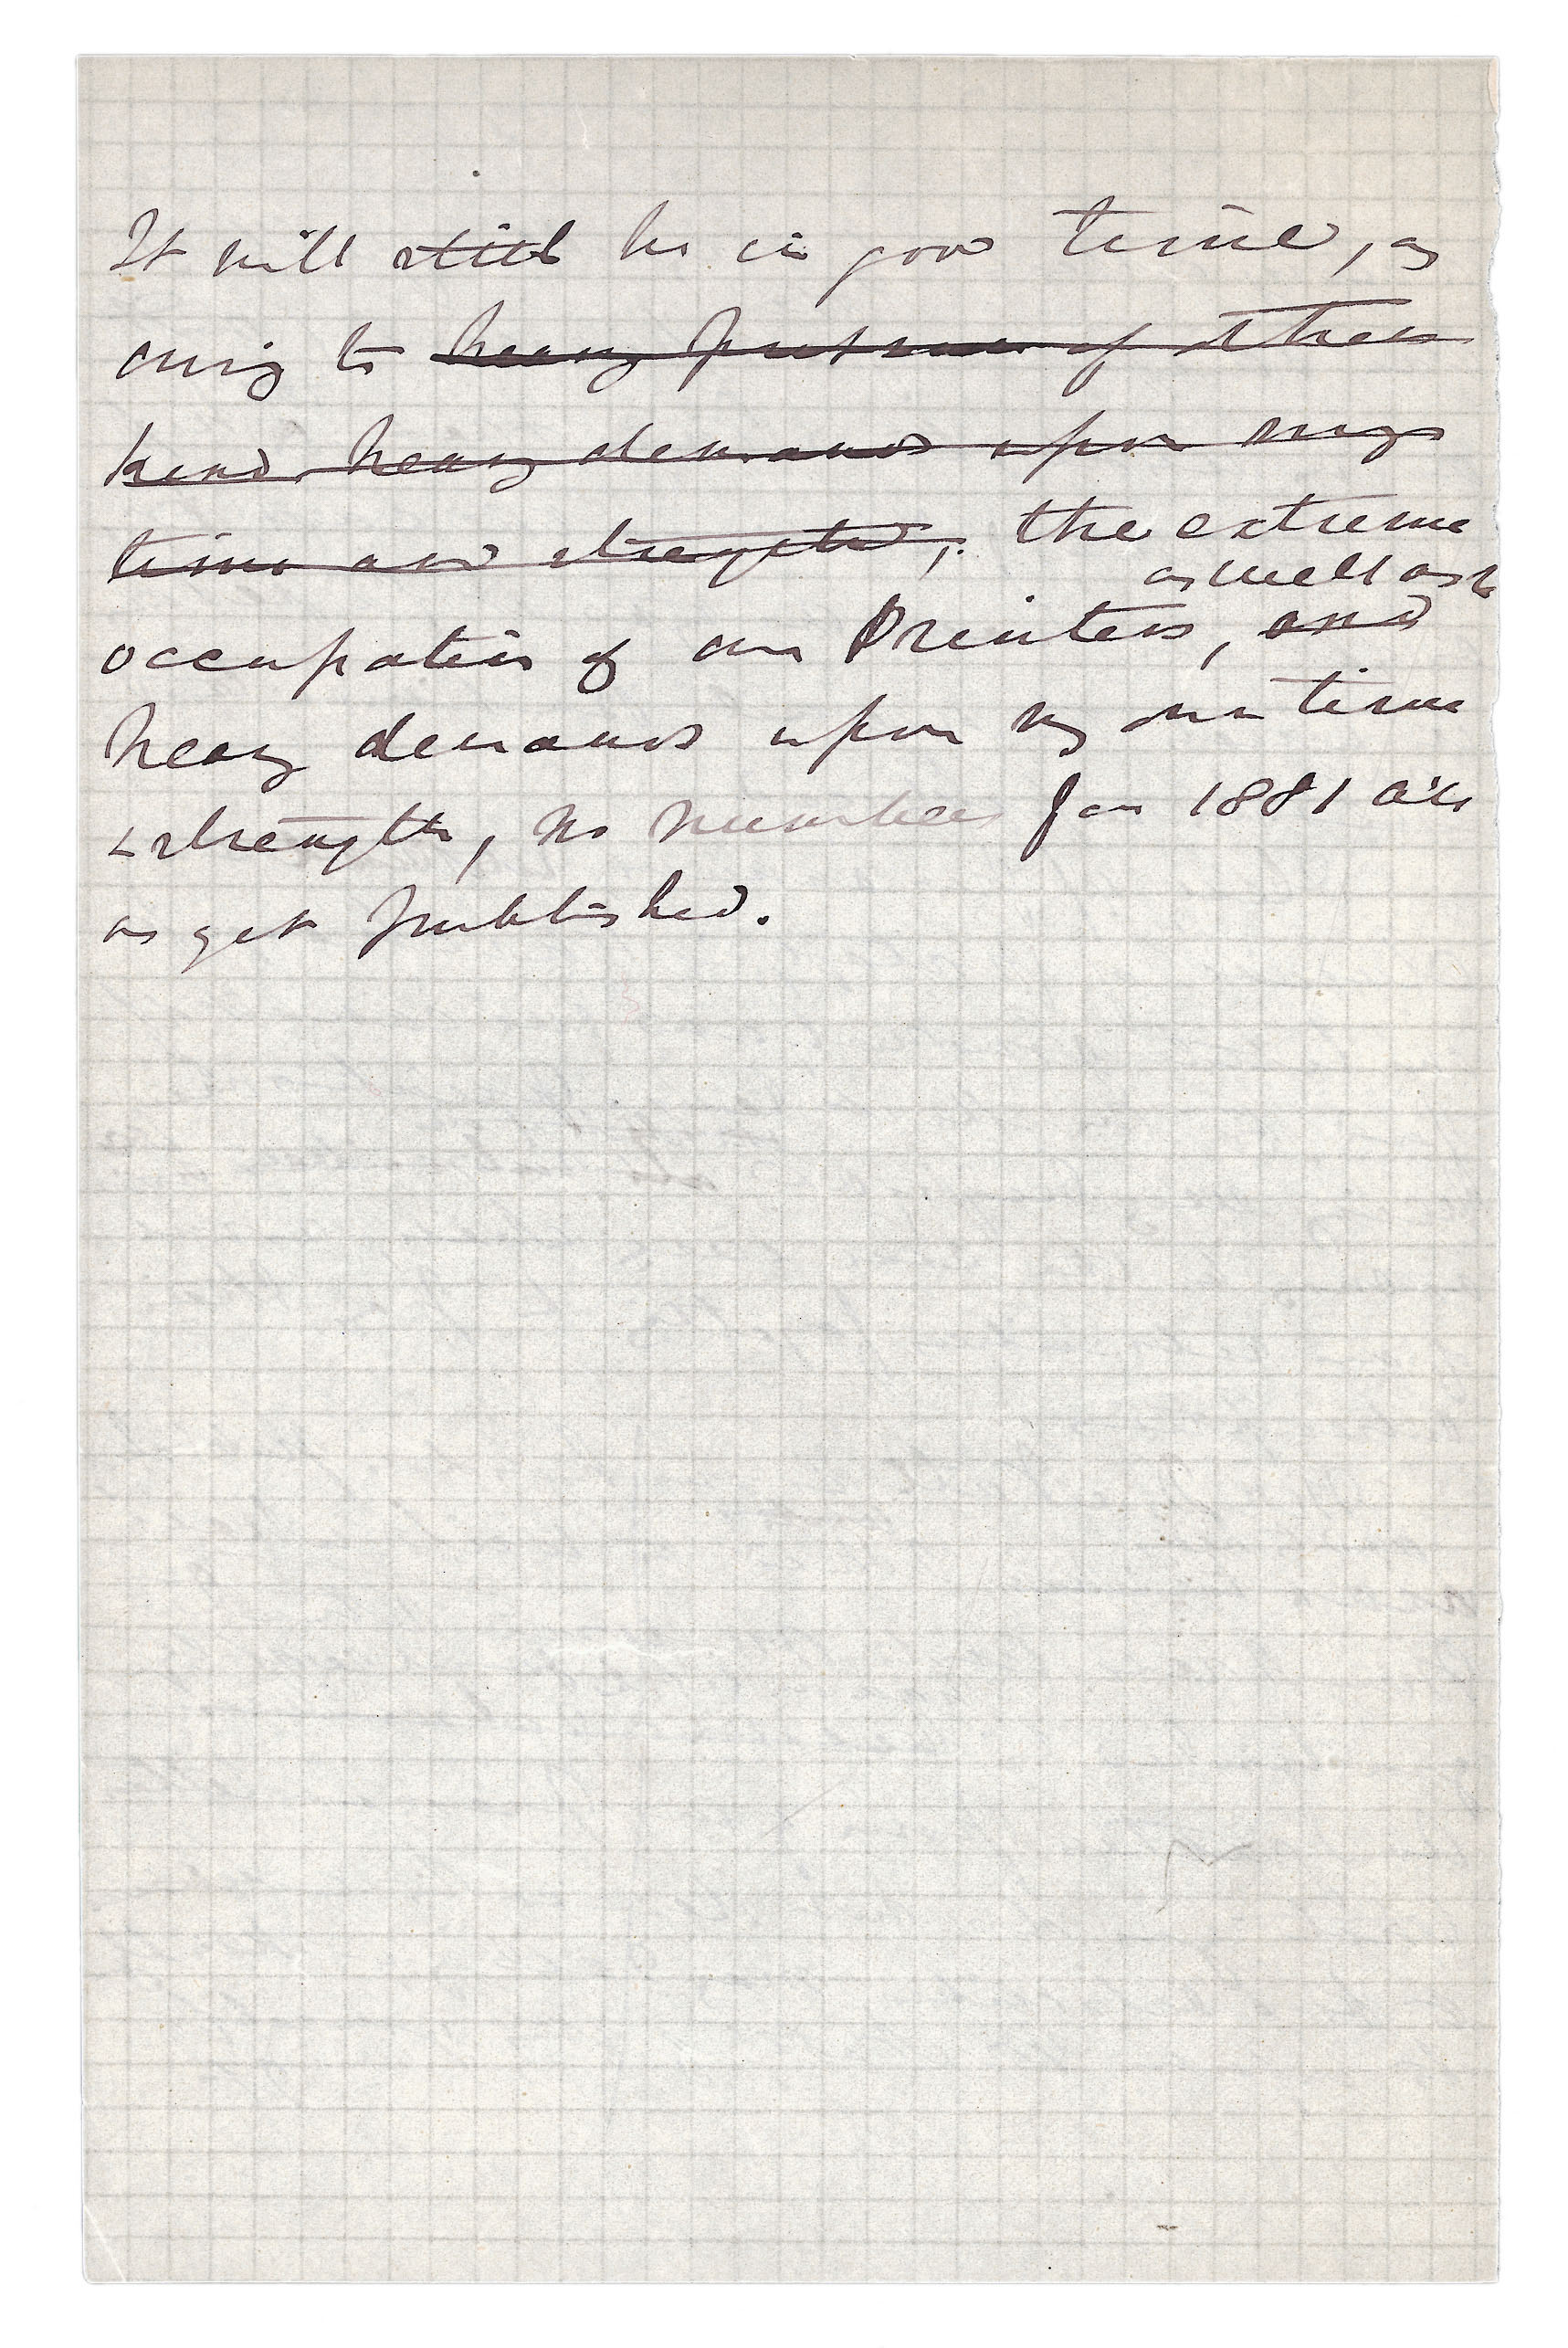 It will still be in good time, as
owing to heavy pressure of other
kind heavy demands upon my
time and strength, the extreme
as well as to
occupation of our Printers, and
heavy demands upon my own time
& strength, no number for 1881 is
as yet published.